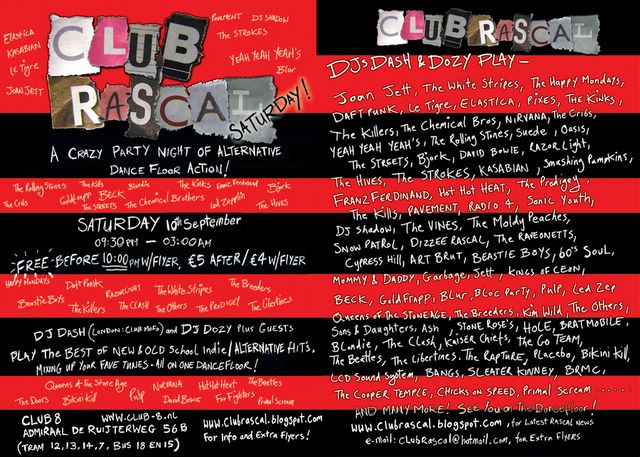 CLUB
RASCAL
SATURDAY!
ELASTICA
KASABIAN
Le Tigre
JOAN JETT
PAVEMENT
DJ SHADOW
The STROKES
YEAH YEAH YEAH'S
Blur
A CRAZY PARTY NIGHT OF ALTERNATIVE
DANCE FLOOR ACTION!
The Rolling Stones
The Kills
Blondie
The Kinks
Franz Ferdinand
Björk
The Cribs
Goldfrapp
BECK
The STREETS
The Chemical Brothers
Led Zeppelin
The Hives
SATURDAY 10th September
09:30 PM — 03:00 AM
FREE-BEFORE 10:00 PM W/FLYER, €5 AFTER/€4 W/FLYER
HAPPY MONDAYS
Daft Punk
RAZORLIGHT
The White Stripes
The Breeders
Beastie Boys
The Killers
The CLASH
The Others
The PRODIGY
The Libertines
DJ DASH (LONDON: CLUB MOFO) and DJ DOZY PLUS GUESTS
PLAY THE BEST OF NEW & OLD School Indie/ALTERNATIVE HITS,
MIXING UP YOUR FAVE TUNES - ALL ON ONE DANCEFLOOR!
Queens of The Stone Age
NIRVANA
Hot Hot Heat
The Beetles
The Doors
Bikini Kill
Pulp
David Bowie
Foo Fighters
Primal Scream
CLUB 8
WWW.CLUB-8.NL
ADMIRAAL DE RUIJTERWEG 56B
(TRAM 12, 13, 14, 7, BUS 18 EN 15)
www.clubrascal.blogspot.com
For Info and Extra Flyers!
CLUB RASCAL
DJs DASH & DOZY PLAY —
Joan Jett, The White Stripes, The Happy Mondays,
DAFT PUNK, Le Tigre, ELASTICA, PIXES, THE KINKS,
The Killers, The Chemical Bros, NIRVANA, The Cribs,
YEAH YEAH YEAH'S, The Rolling Stines, Suede, OASIS,
The STREETS, Bjork, DAVID BOWIE, RAZOR LIGHT,
The HIVES, THE STROKES, KASABIAN, Smashing Pumpkins,
FRANZ FERDINAND, Hot Hot HEAT, The Prodigey,
The Kills, PAVEMENT, RADIO 4, Sonic Youth,
DJ Shadow, The VINES, The Moldy Peaches,
SNOW PATROL, DIZZEE RASCAL, The RAVEONETTS,
CYPRESS HILL, ART BRUT, BEASTIE BOYS, 60'S SOUL,
MOMMY & DADDY, Garbage, Jett, KINGS OF LEON,
BECK, Goldfrapp, Blur, BLOC PARTY, Pulp, Led Zep
Queens of The STONE AGE, The Breeders, Kim Wild, The Others,
Sons & Daughters, Ash, STONE ROSE'S, HOLE, BRATMOBILE,
Blondie, The Clash, Kaiser Chiefs, The GO TEAM,
The Beetles, The Libertines, The RAPTURE, PLACEBO, Bikini Kill,
LCD Sound System, BANGS, SLEATER KINNEY, BRMC,
The COOPER TEMPLE, CHICKS ON SPEED, PRIMAL Scream .....
AND MANY MORE! SEE YOU ON The Dancefloor!
www.clubrascal.blogspot.com, for Latest Rascal News
e-mail: clubRascal@hotmail.com, for Extra Flyers